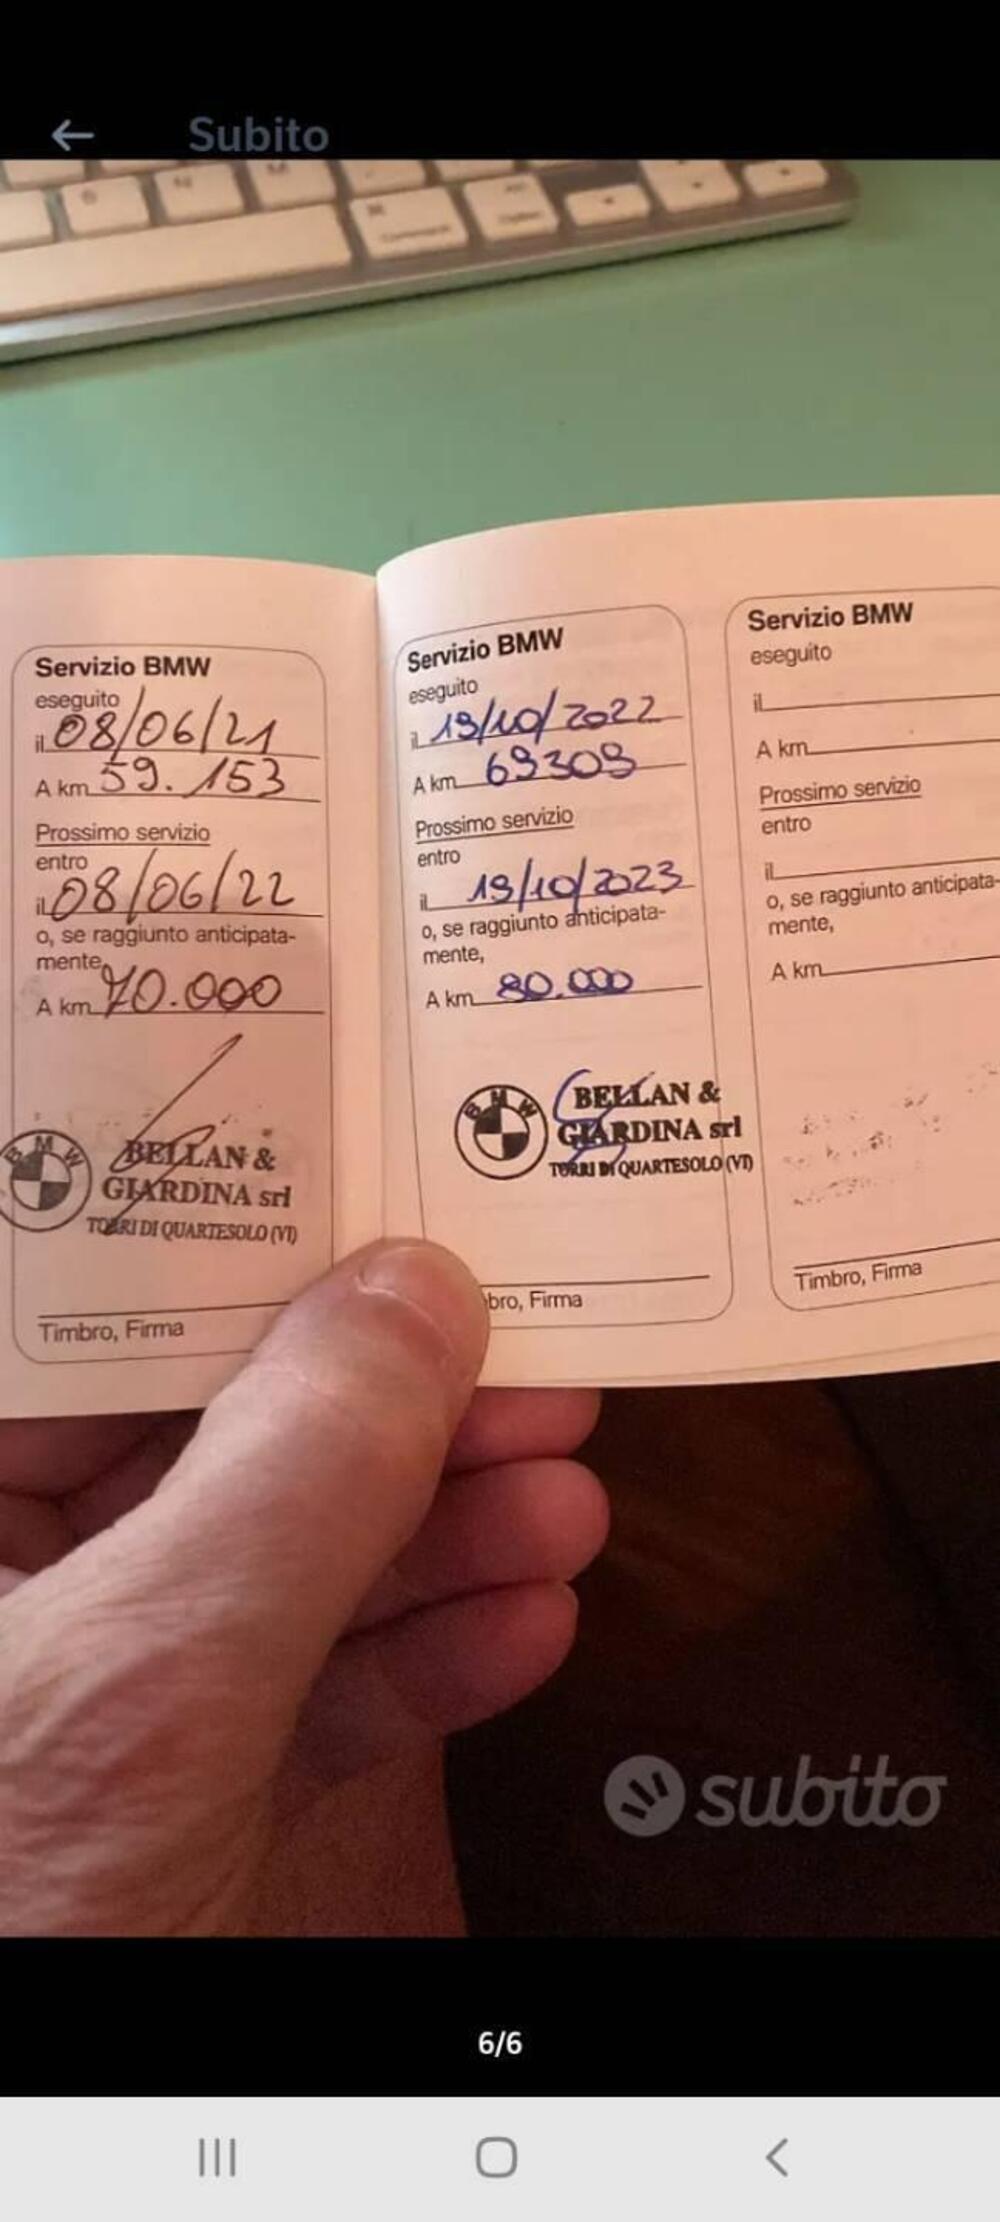 Subito
Servizio BMW
eseguito
il 08/06/21
A km 59.153
Prossimo servizio
entro
il 08/06/22
o, se raggiunto anticipata-
mente,
A km 70.000
BMW
BELLAN &
GIARDINA srl
TORRI DI QUARTESOLO (VI)
Timbro, Firma
Servizio BMW
eseguito
il 19/10/2022
A km 69309
Prossimo servizio
entro
il 19/10/2023
o, se raggiunto anticipata-
mente,
A km 80.000
BMW
BELLAN &
GIARDINA srl
TORRI DI QUARTESOLO (VI)
bro, Firma
Servizio BMW
eseguito
il
A km
Prossimo servizio
entro
il
o, se raggiunto anticipata-
mente,
A km
Timbro, Firma
subito
6/6